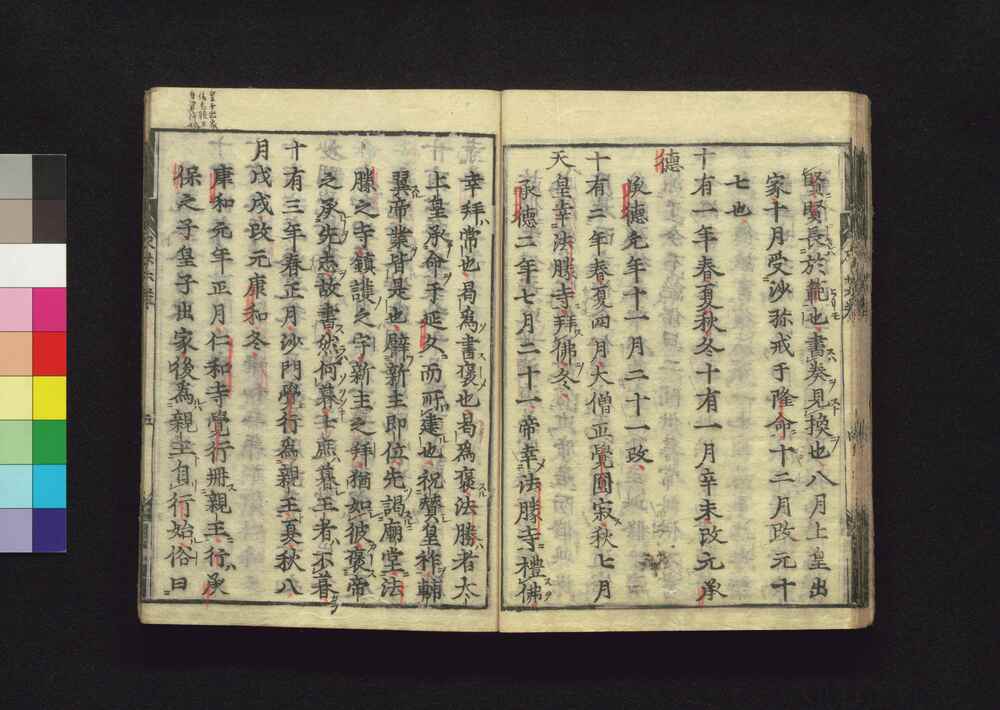 賢賢長於範也書癸見換也八月上皇出
家十月受沙弥戒于隆命十二月改元十
七也
十有一年春夏秋冬十有一月辛未改元承
德
承德元年十一月二十一改
十有二年春夏四月大僧正覺圓寂秋七月
天皇幸法勝寺拜佛冬
承德二年七月二十一帝幸法勝寺禮佛
幸拜常也曷為書褒也曷為褒法勝者太
上皇承命于延久而所建也祝贊皇祚輔
翼帝業皆是也辟新主即位先謁廟堂法
勝之寺鎮護之宇新主之拜猶如彼褒帝
之承先志故書然何暮王庶暮王者不暮
十有三年春正月沙門覺行為親王夏秋八
月戊戌改元康和冬
康和元年正月仁和寺覺行冊親王行承
保之子皇子出家後為親王自行始俗曰
五